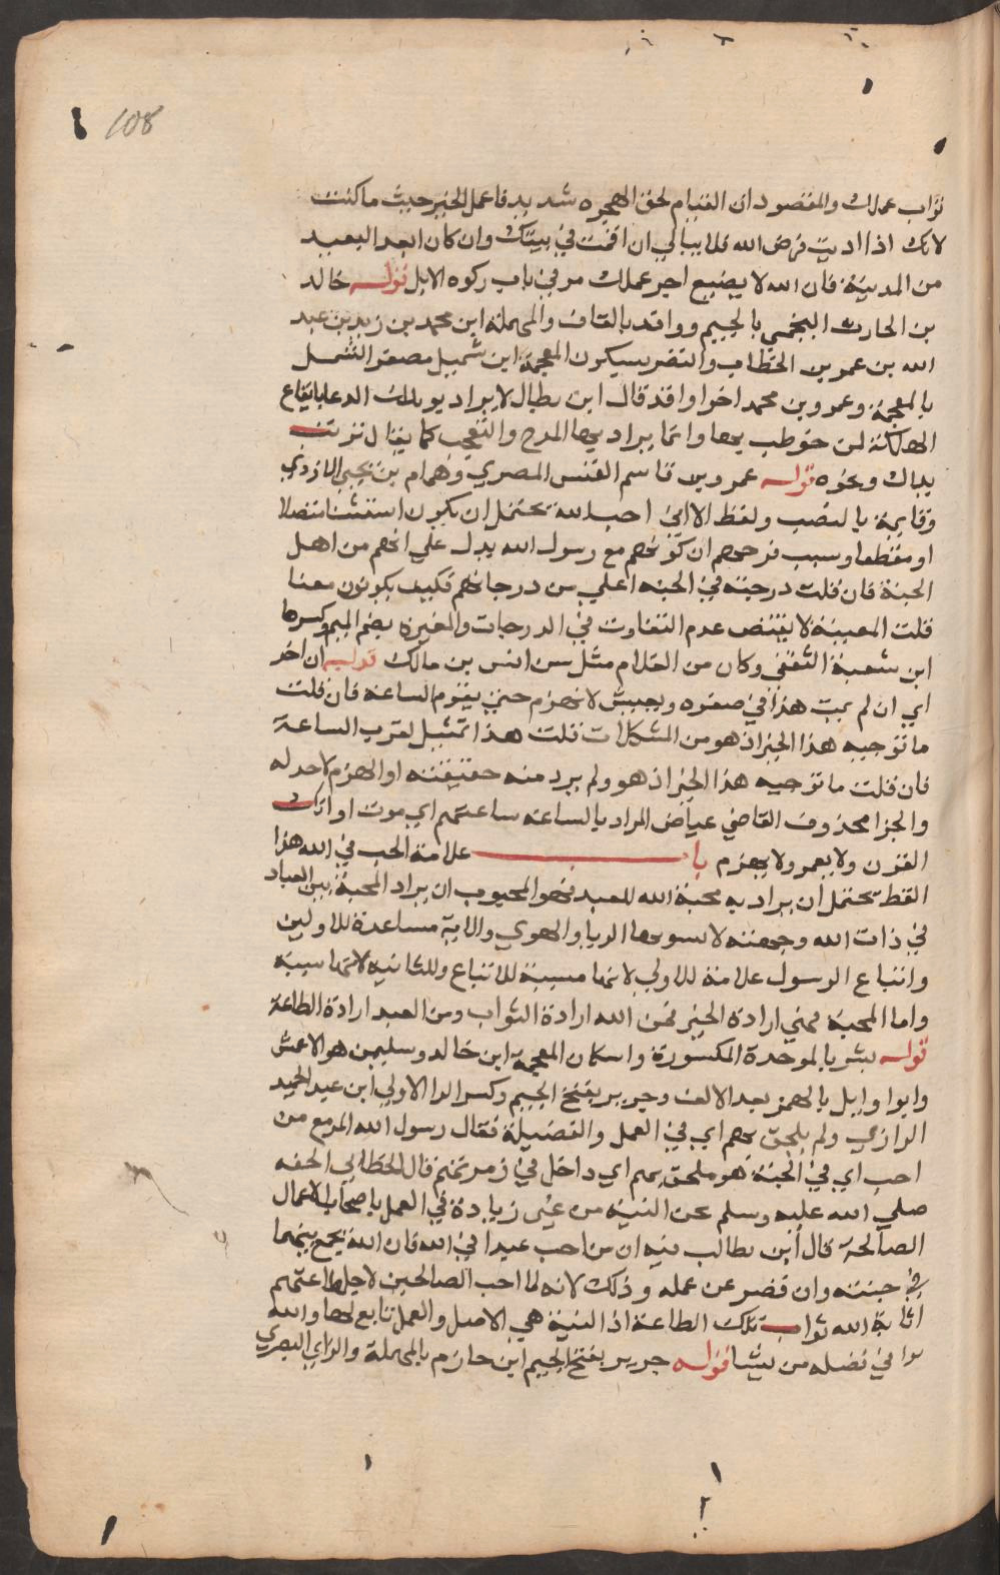 108
ثواب عملك والمقصود ان القيام لحق الهجره شديد فاعمل الخير حيث ما كنت
لانك اذا اديت فرض الله فلا يبالي ان اقمت في بيتك وان كان ابعد البعيد
من المدينة فان الله لا يضيع اجر عملك مر في باب زكوه الابل قوله خالد
بن الحارث الهجيمي بالجيم وواقد بالقاف والمهملة ابن محمد بن زيد بن عبد
الله بن عمر بن الخطاب والنضر بسكون المعجمة ابن شميل مصغر الشمل
بالمعجمة وعمرو بن محمد اخوا واقد قال ابن بطال لا يراد بويلك الدعا بايقاع
الهلكة لمن خوطب بها وانما يراد بها المدح والتعجب كما يقال تربت
يداك ونحوه قوله عمرو بن عاصم القيسي المصري وهمام بن يحيي الازدي
وقايمة بالنصب ولفظ الا اني احب الله يحتمل ان يكون استثنا متصلا
او منقطعا وسبب فرحهم ان كونهم مع رسول الله يدل علي انهم من اهل
الجنة فان قلت درجته في الجنه اعلي من درجاتهم فكيف يكونون معنا
قلت المعية لا يقتض عدم التفاوت في الدرجات والمغيره بضم الميم وكسرها
ابن شعبة الثقفي وكان من الغلام مثل سن انس بن مالك قوله ان اخر
اي ان لم يمت هذا في صغره ويعيش لا يهرم حتي يقوم الساعة فان قلت
ما توجيه هذا الخبر اذ هو من المشكلات قلت هذا تمثيل لقرب الساعة
فان قلت ما توجيه هذا الخبر اذ هو ولم يرد منه حقيقته او الهرم لا حد له
والجزا محذوف القاضي عياض المراد بالساعه ساعتهم اي موت اولئك
القرن ولا يعمر ولا يهرم باب علامة الحب في الله هذا
اللفظ يحتمل ان يراد به محبة الله للعبد فهو المحبوب ان يراد المحبة بين العباد
في ذات الله وجهته لا يسوبها الريا والهوي والاية مساعدة للاولين
واتباع الرسول علامة للاولي لانها مسببة للاتباع وللثانيه لانها سببه
واما المحبة فهي ارادة الخير فمن الله ارادة الثواب ومن العبد ارادة الطاعة
قوله بشر بالموحدة المكسورة واسكان المعجمة ابن خالد وسليمن هو الاعمش
وابوا وايل بالهمز بعد الالف وجرير بفتح الجيم وكسر الرا الاولي ابن عبد الحميد
الرازي ولم يلحق بهم اي في العمل والفضيلة فقال رسول الله المرء مع من
احب اي في الجنة هو ملحق بهم اي داخل في زمرتهم قال الخطابي الحقه
صلي الله عليه وسلم بحسن النية من غير زيادة في العمل باصحاب الاعمال
الصالحة قال ابن بطال فيه ان من احب عبدا في الله فان الله يجمع بينهما
في جنته وان قصر عن عمله وذلك لانه لما احب الصالحين لاجل طاعتهم
اثابة الله ثواب تلك الطاعة اذ النية هي الاصل والعمل تابع لها والله
في فضله من يشا قوله جرير بفتح الجيم ابن حازم بالمهملة والزاي البصري